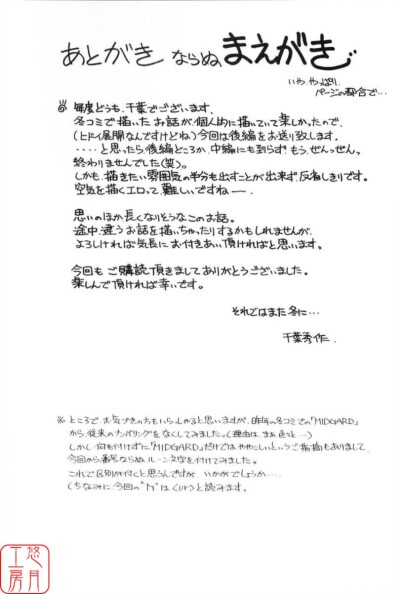 あとがき ならぬ まえがき
いや、やっぱり
ページの都合で…
毎度どうも、千葉でございます。
冬コミで描いたお話が、個人的に描いていて楽しかったので、
(ヒドイ展開なんですけどね)今回は後編をお送り致します。
‥‥と思ったら後編どころか、中編にも到らず、もう、ぜんっぜん。
終わりませんでした(笑)。
しかも、描きたい雰囲気の半分も出すことが出来ず、反省しきりです。
空気を描くエロって、難しいですねー。
思いのほか長くなりそうなこのお話。
途中、違うお話を描いちゃったりするかもしれませんが、
よろしければ気長にお付きあい頂ければと思います。
今回もご購読頂きましてありがとうございました。
楽しんで頂ければ幸いです。
それではまた冬に…
千葉秀作.
※ ところで、お気づきの方もいらっしゃると思いますが、昨年の冬コミでの「MIDGARD」
から、従来のナンバリングをなくしてみました。(理由は、まぁ色々と…)
しかし、何も付けずに「MIDGARD」だけではややこしいというご指摘もありまして、
今回から番号ならぬルーン文字を付けてみました。
これで区別が付くと思うんですが、いかがでしょうか‥‥。
(ちなみに今回の"ᛖ"は
と読みます。
悠月工房